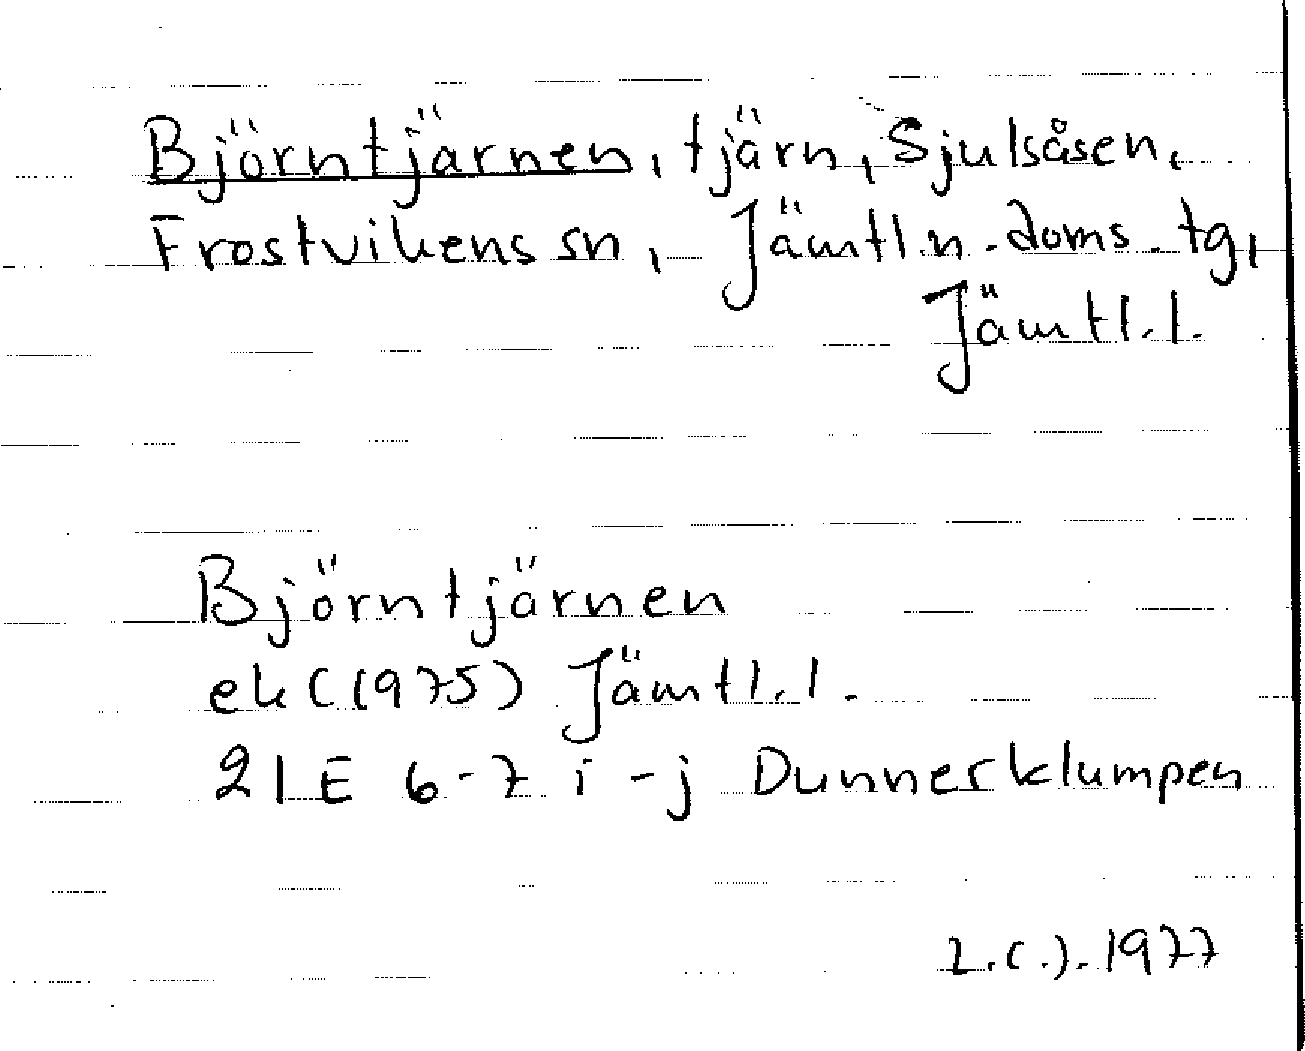 Björntjärnen, tjärn, Sjulsåsen,
Frostvikens sn, Jämtl.n. doms. tg,
Jämtl.l.
Björntjärnen
ek (1975) Jämtl.l.
21E 6-7 i-j Dunnerklumpen
1977